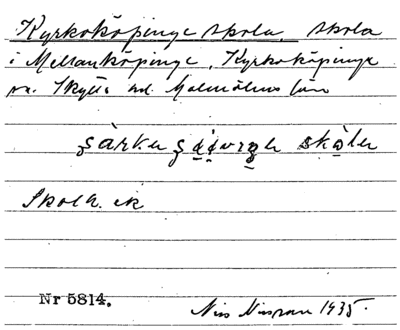 Kyrkoköpinge skola, skola
i Mellanköpinge, Kyrkoköpinge
sn. Skytts hd. Malmöhus län
skola
Skola. ek
Nr 5814.
Nils Nilsson 1935.